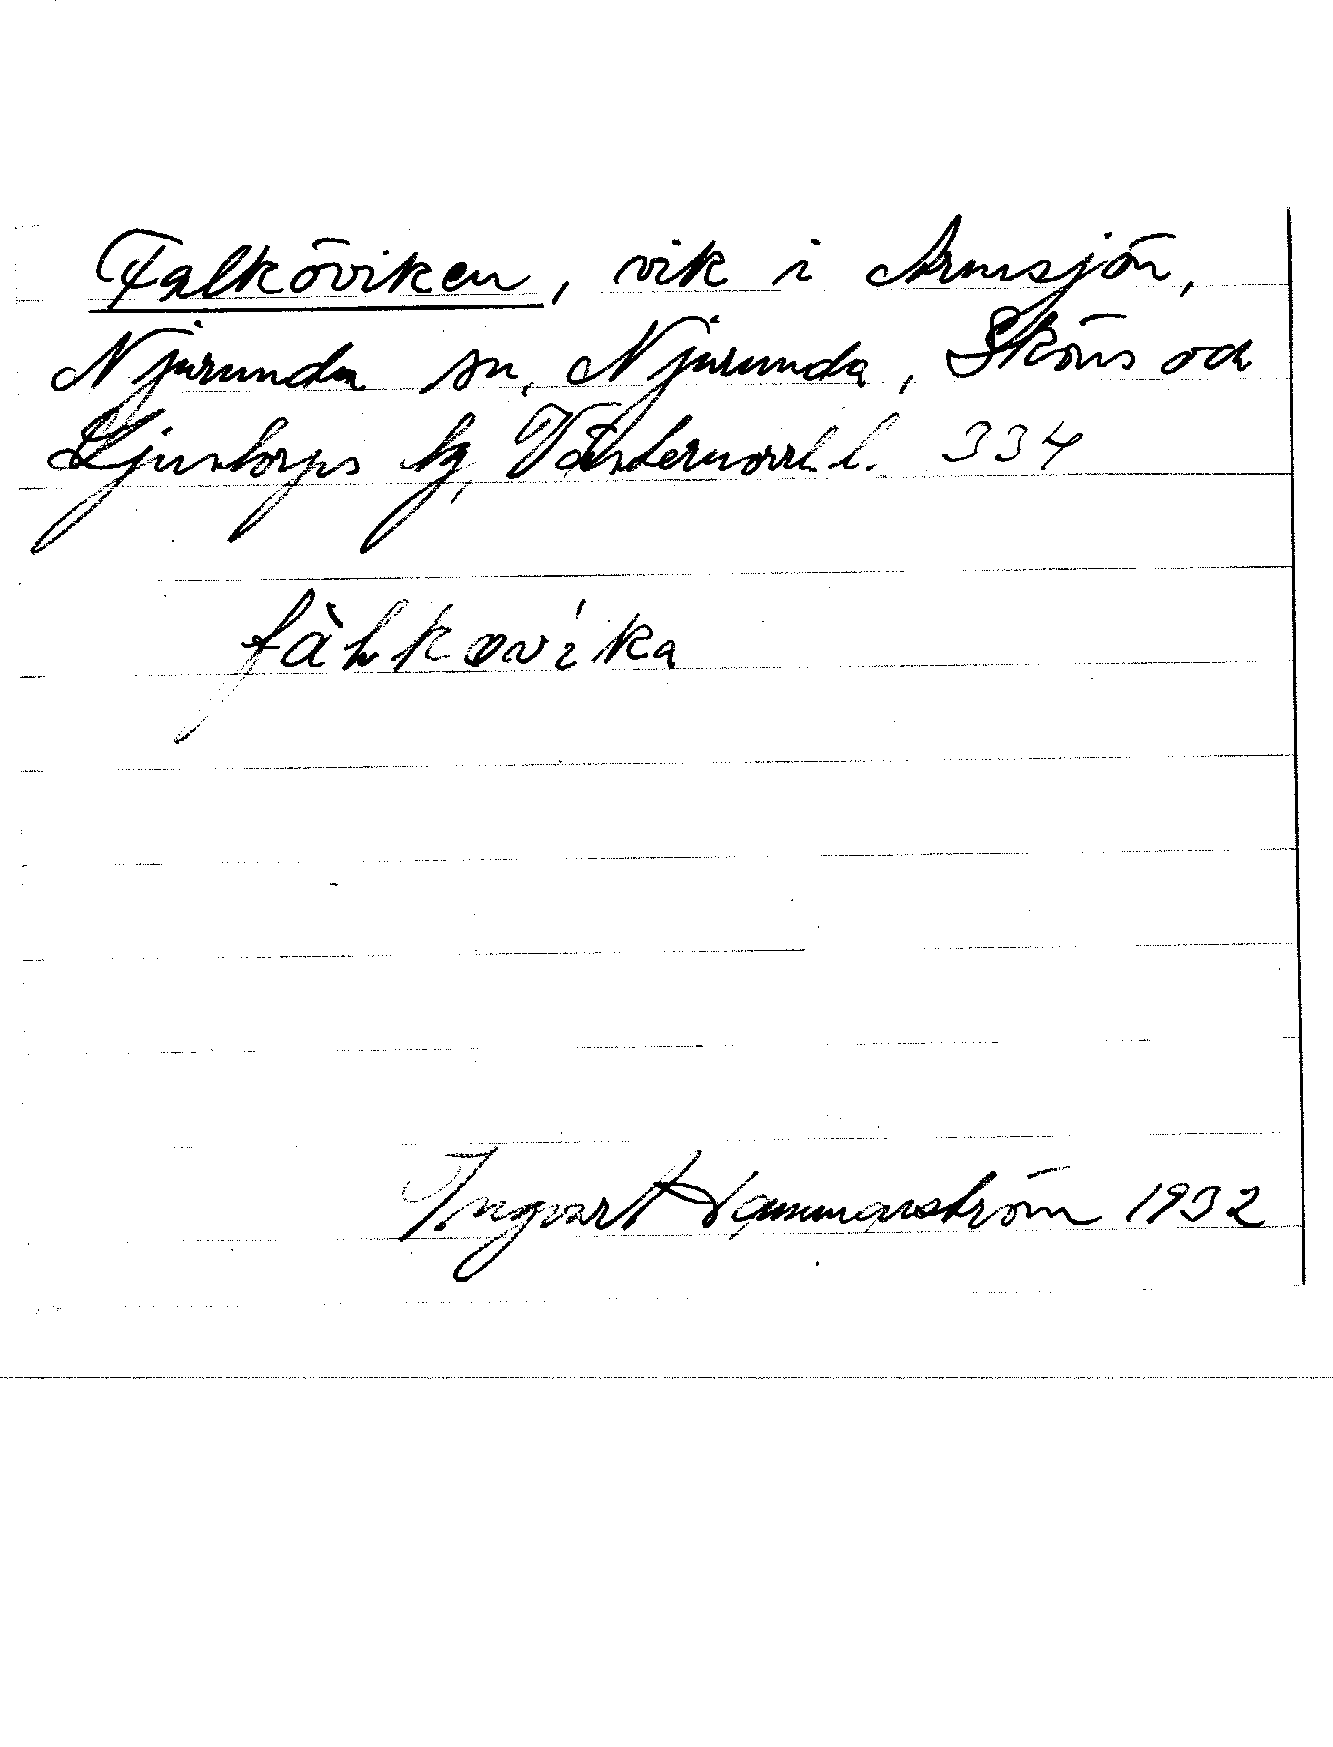 Falköviken, vik i Armsjön,
Njurunda sn, Njurunda, Sköns och
Ljustorps tg, Västernorrl. l. 334
fàlkovika
Ingvart Hammarström 1932